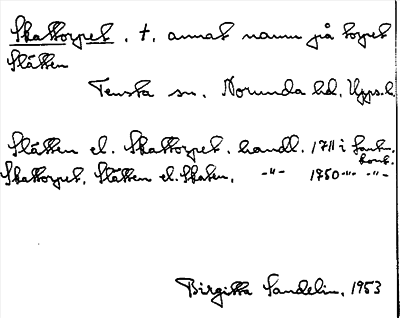 Skattorpet, t. annat namn på torpet
Slätten
Tensta sn. Norunda hd. Upps.l.
Slätten el. Skattorpet. handl. 1711 i Lantm.
kont.
Skattorpet, Slätten el. Skaten, -"- 1750 -"- -"-
Birgitta Sandelin, 1953